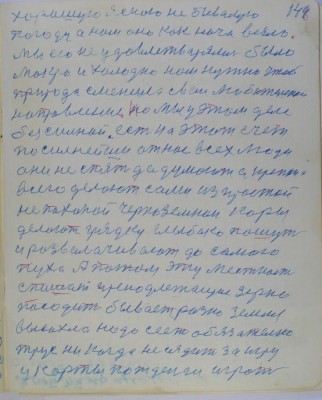 хорошую ясною не бывалую 149
погоду а нам она как нача везло.
Мы ею не удовлетварялис было
мокро и холодно нам нужно чтоб
природа сменила свои
направление, но мы у этом деле
безсильнаи. ест на этот счет
посильнейши от нас всех люди
они не спят да думают а
всего делают сами из простой
не паханой черноземнаи коры
делают грядку глыбоко пашут
и розвалачивают до самого
пуха А потом эту местнаст
спешат преподлежащие зерно
посодит бывает разно земля
высохла надо сеет обязателно
трус ни когда не сядит за игру
у карты пожденги играт